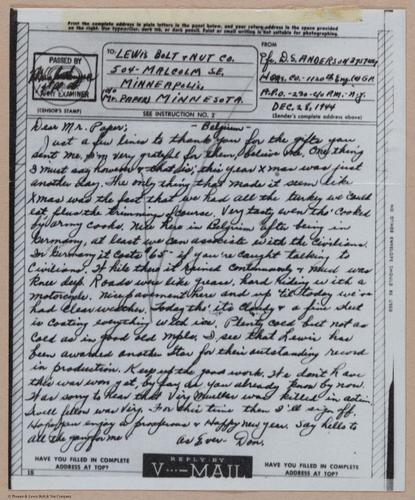 Print the complete address in plain letters in the panel below, and your return address in the space provided
on the right. Use typewriter, dark ink, or dark pencil. Faint or small writing is not suitable for photographing.
PASSED BY
ARMY EXAMINER
(CENSOR'S STAMP)
TO: LEWIS BOLT & NUT CO.
504 - MALCOLM SE,
MINNEAPOLIS
Mr. PAPER MINNESOTA.
SEE INSTRUCTION NO. 2
FROM
Pfc. D.S. ANDERSON
HDQS. CO. - 1120th Eng. (C) GR.
A.P.O. - 230 - c/o P.M. - N.Y.
DEC. 28, 1944
(Sender's complete address above)
Dear Mr. Paper; - Belgium -
Just a few lines to thank you for the gifts you
sent me, I'm very grateful for them, believe me. One thing
I must say however & that is, this year Xmas was just
another day. The only thing that made it seem like
Xmas was the fact that we had all the turkey we could
eat plus the trimmings of course. Very tasty even tho' cooked
by army cooks. Nice here in Belgium after being in
Germany, at least we can associate with the civilians.
In Germany it costs "65" if you're caught talking to
civilians. While there it rained continuously & mud was
knee deep. Roads were like grease, hard riding with a
motorcycle. Nice pavement here and up 'til today we've
had clear weather. Today tho' its cloudy & a fine sleet
is coating everything with ice. Plenty cold but not as
cold as in good old Mpls. I see that Lewis has
been awarded another star for their outstanding record
in production. Keep up the good work. We don't have
this war won yet, by far as you already know by now.
Was sorry to hear that Very Mueller was killed in action.
Swell fellow was Very. For this time then I'll sign off.
Hope you enjoy a prosperous & Happy New year. Say hello to
all the gang for me. As Ever Don
HAVE YOU FILLED IN COMPLETE
ADDRESS AT TOP?
REPLY BY
V···—MAIL
HAVE YOU FILLED IN COMPLETE
ADDRESS AT TOP?